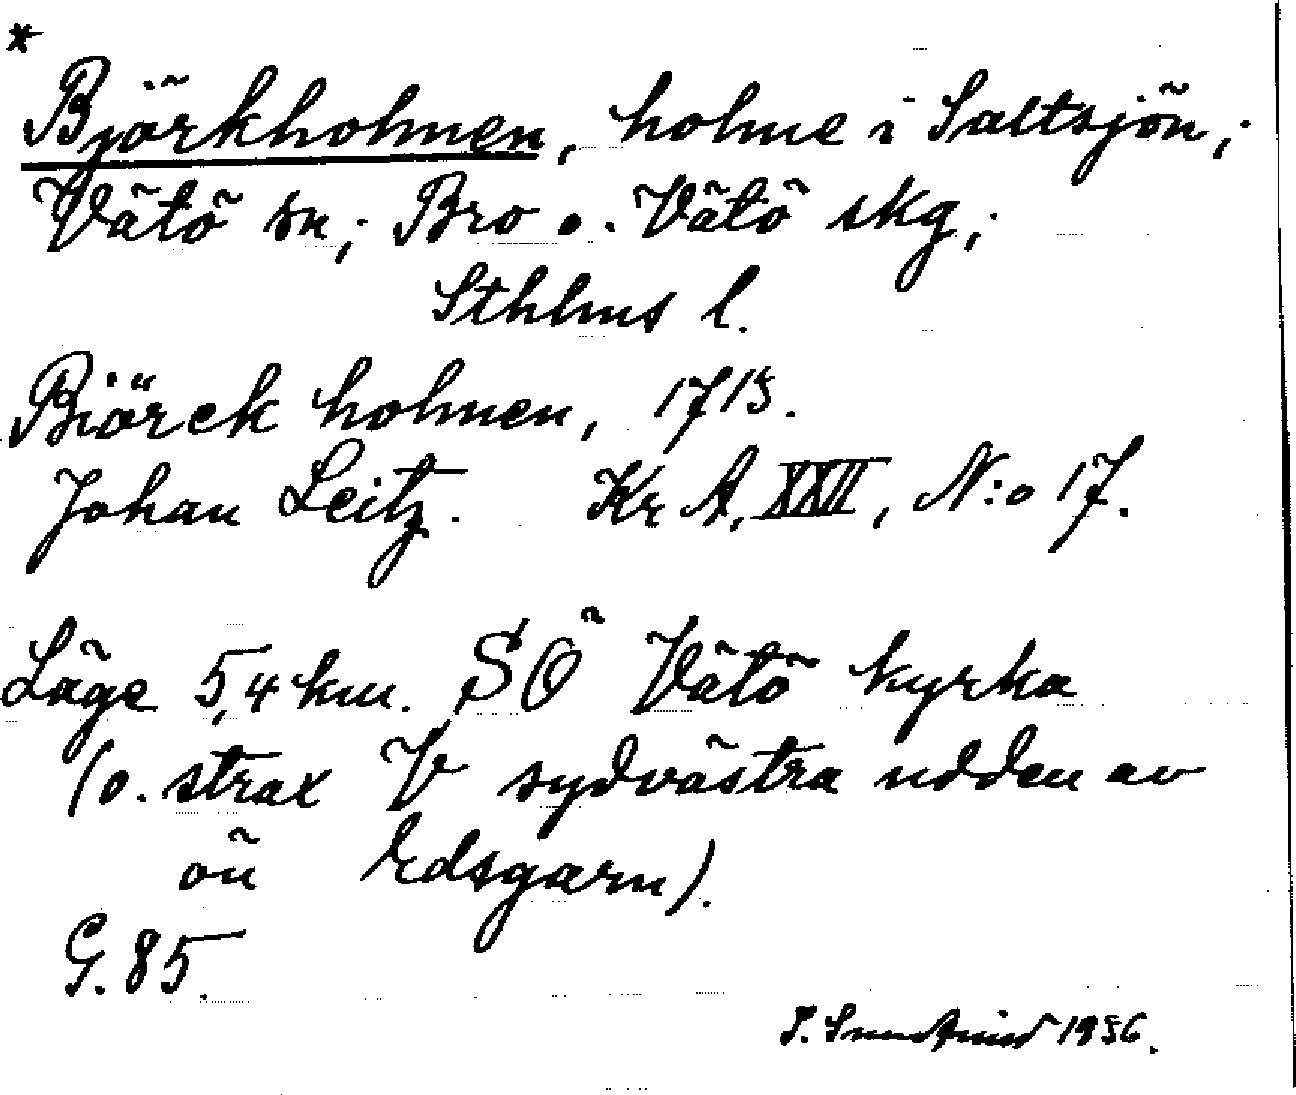 *
Björkholmen, holme i Saltsjön,;
Vätö sn,; Bro o. Vätö skg,;
Sthlms l.
Biörck holmen, 1715.
Johan Leitz. Kr A, XXII, N:o 17.
Läge 5,4 km. SÖ Vätö kyrka
(o. strax V sydvästra udden av
ön Edsgarn).
G. 85.
1936.